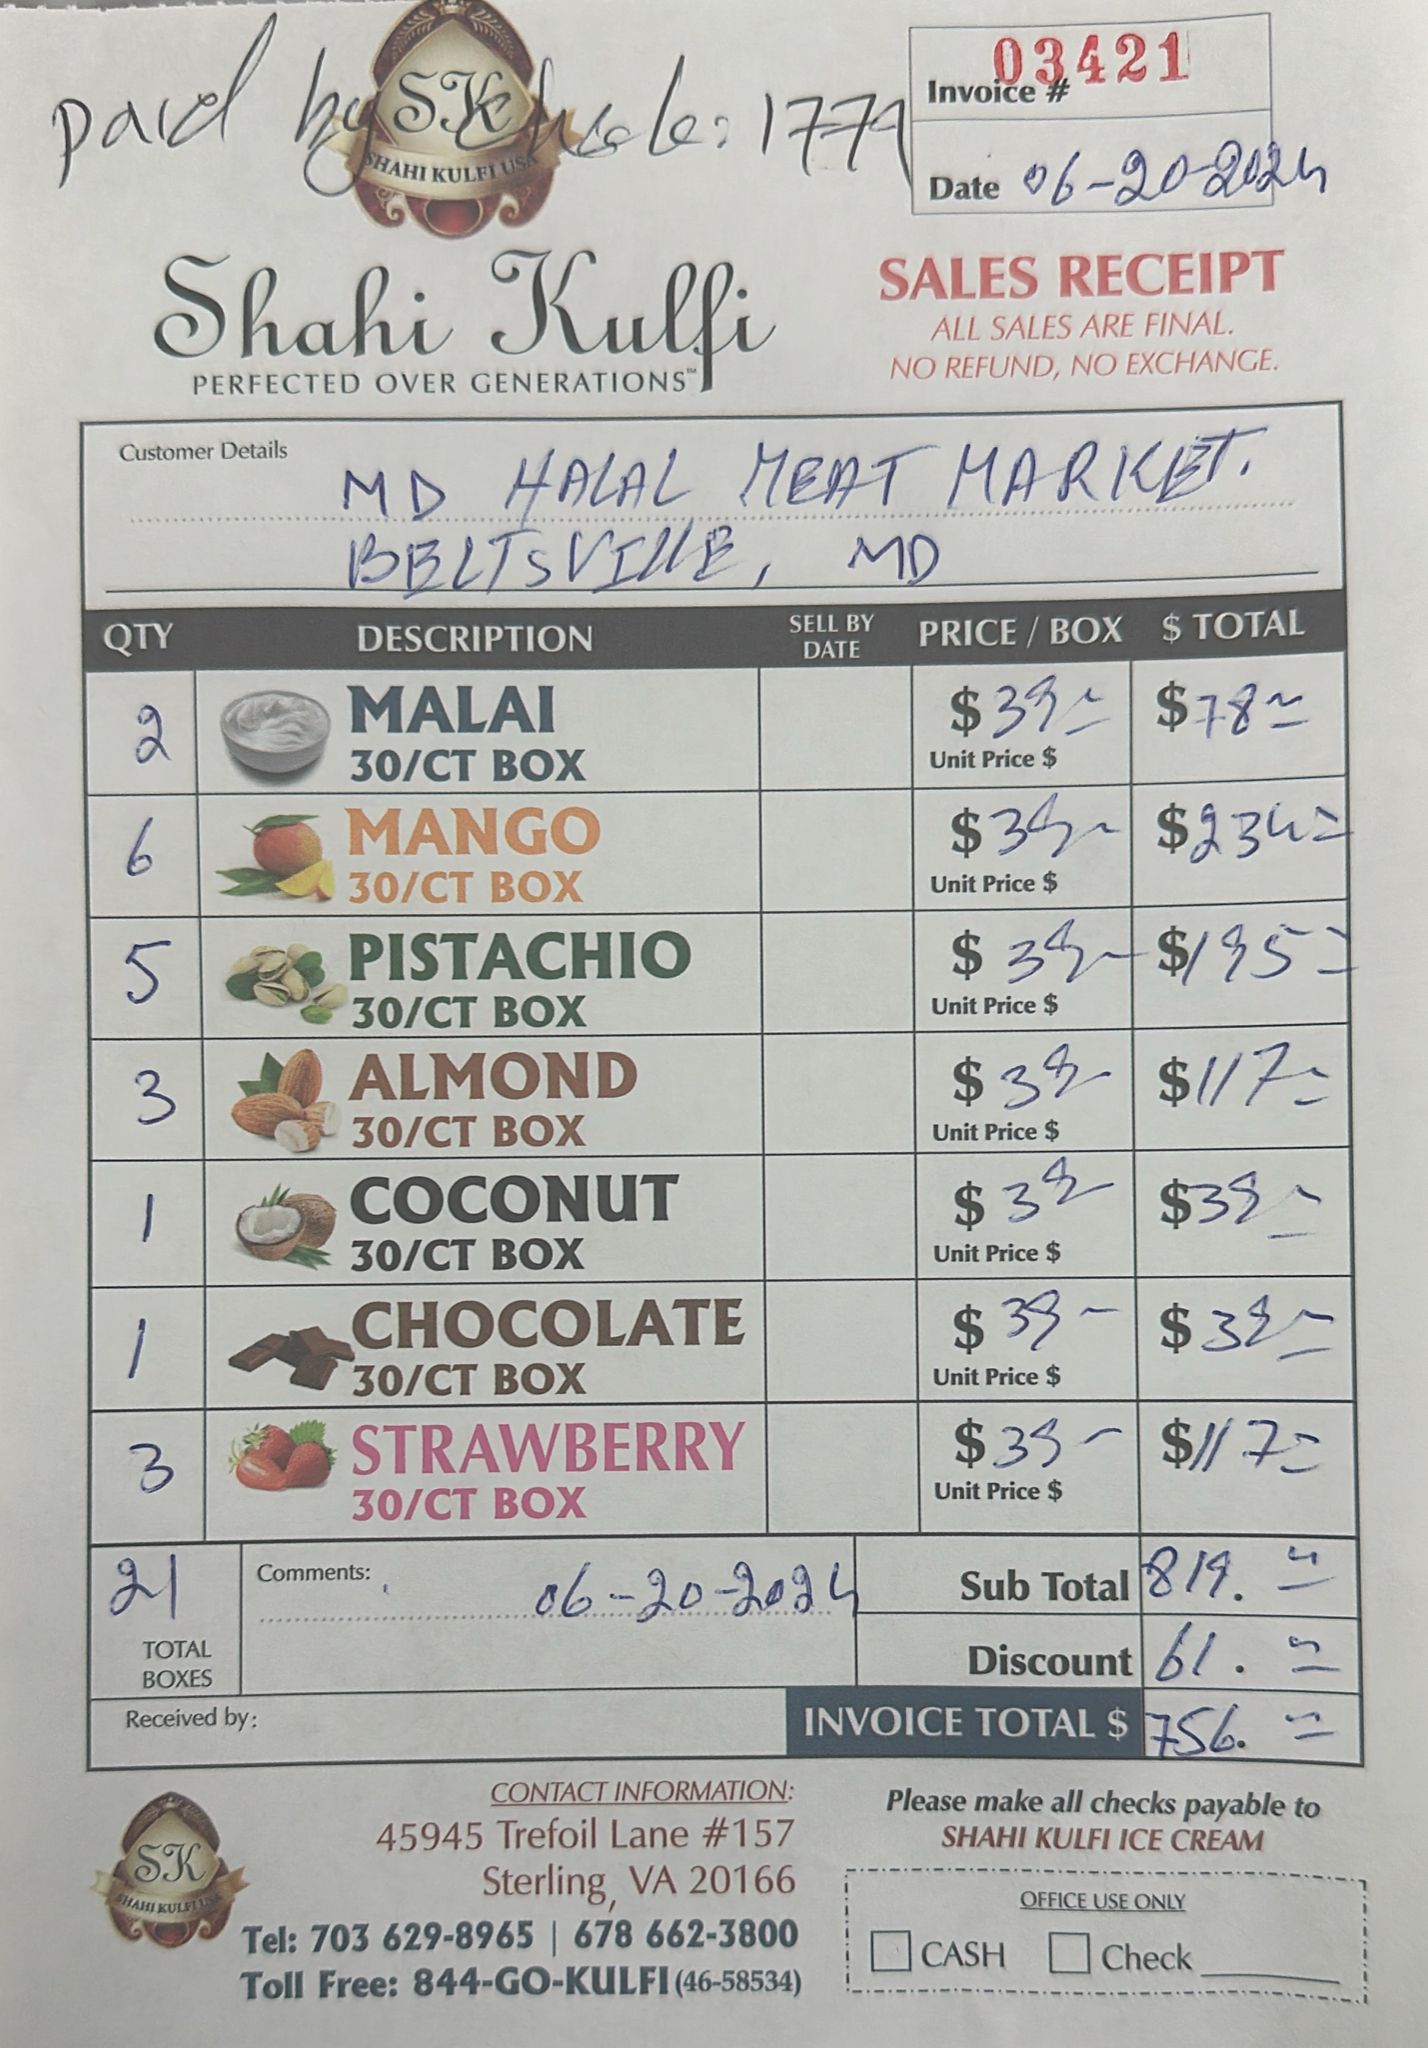 paid by check: 1779
SK
SHAHI KULFI USA
Invoice # 03421
Date 06-20-2024
Shahi Kulfi
PERFECTED OVER GENERATIONS™
SALES RECEIPT
ALL SALES ARE FINAL.
NO REFUND, NO EXCHANGE.
Customer Details
MD HALAL MEAT MARKET.
BELTSVILLE, MD
QTY DESCRIPTION SELL BY DATE PRICE / BOX $ TOTAL
2 MALAI $39 $78
30/CT BOX Unit Price $
6 MANGO $39 $234
30/CT BOX Unit Price $
5 PISTACHIO $39 $195
30/CT BOX Unit Price $
3 ALMOND $39 $117
30/CT BOX Unit Price $
1 COCONUT $39 $39
30/CT BOX Unit Price $
1 CHOCOLATE $39 $39
30/CT BOX Unit Price $
3 STRAWBERRY $39 $117
30/CT BOX Unit Price $
21 TOTAL BOXES
Comments: 06-20-2024
Sub Total 819.
Discount 61.
Received by:
INVOICE TOTAL $ 756.
SK
SHAHI KULFI USA
CONTACT INFORMATION:
45945 Trefoil Lane #157
Sterling, VA 20166
Tel: 703 629-8965 | 678 662-3800
Toll Free: 844-GO-KULFI (46-58534)
Please make all checks payable to
SHAHI KULFI ICE CREAM
OFFICE USE ONLY
CASH Check